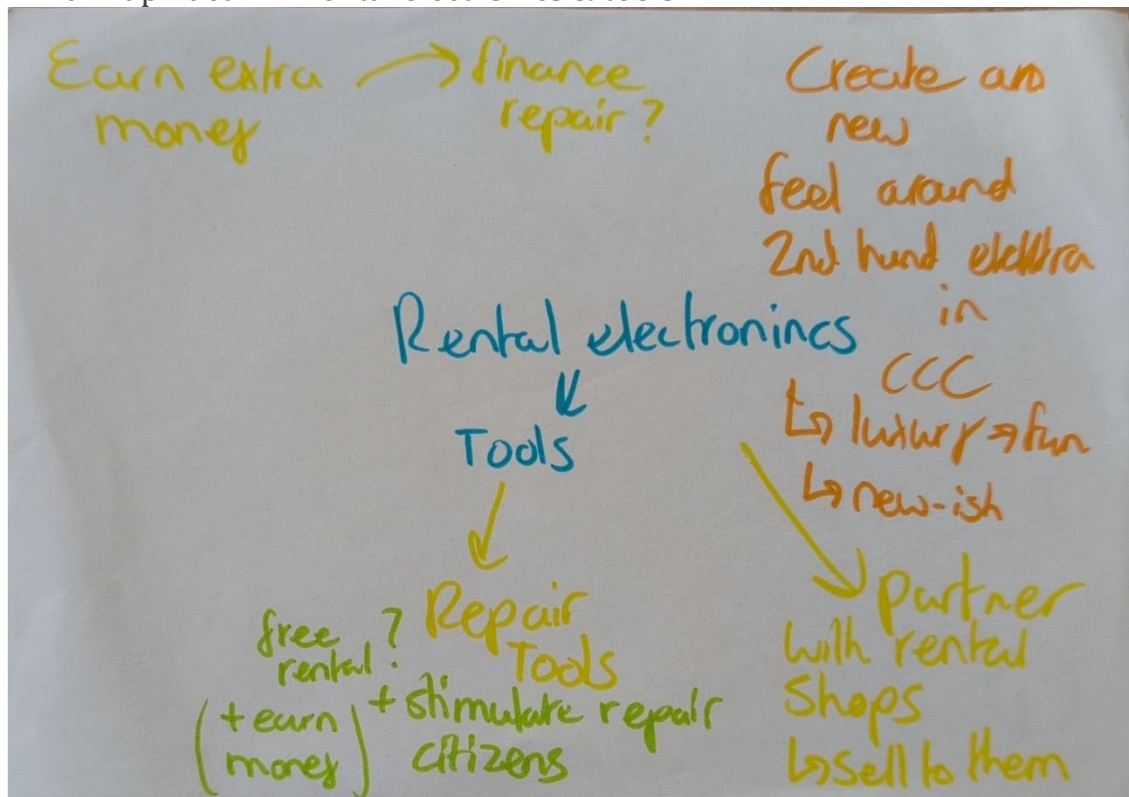 Earn extra → finance
money repair?
Create an
new
feel around
2nd hand elektra
in
CCC
↳ luxury → fun
↳ new-ish
Rental electronincs
Tools
Repair
Tools
free
rental?
+ stimulate repair
citizens
(+ earn
money)
partner
with rental
shops
↳ sell to them